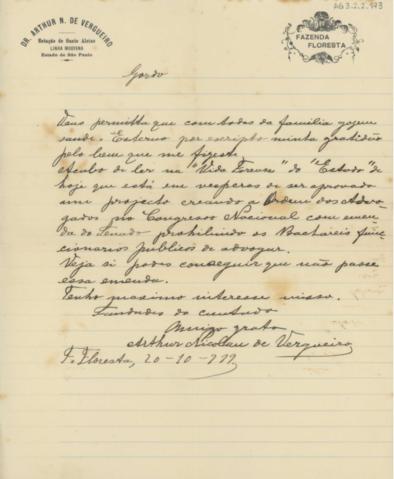 AG3.2.2.173
DR. ARTHUR N. DE VERGUEIRO
Estação de Santo Aleixo
LINHA MOGYANA
Estado de São Paulo
FAZENDA FLORESTA
Gordo
Deus permitta que com todos da familia gozem
saude. Externo por escripto minha gratidão
pelo bem que me fizeste.
Acabo de ler na "Vida Forense" do "Estado" de
hoje que está em vesperas de ser aprovado
um projecto creando a Ordem dos Advo-
gados no Congresso Nacional com emen-
da do Senado prohibindo os Bachareis func-
cionarios publicos de advogar.
Veja si podes conseguir que não passe
essa emenda.
Tenho maximo interesse nisso.
Saudades do cunhado
Amigo grato
Arthur Nicolau de Vergueiro
F. Floresta, 20-10-